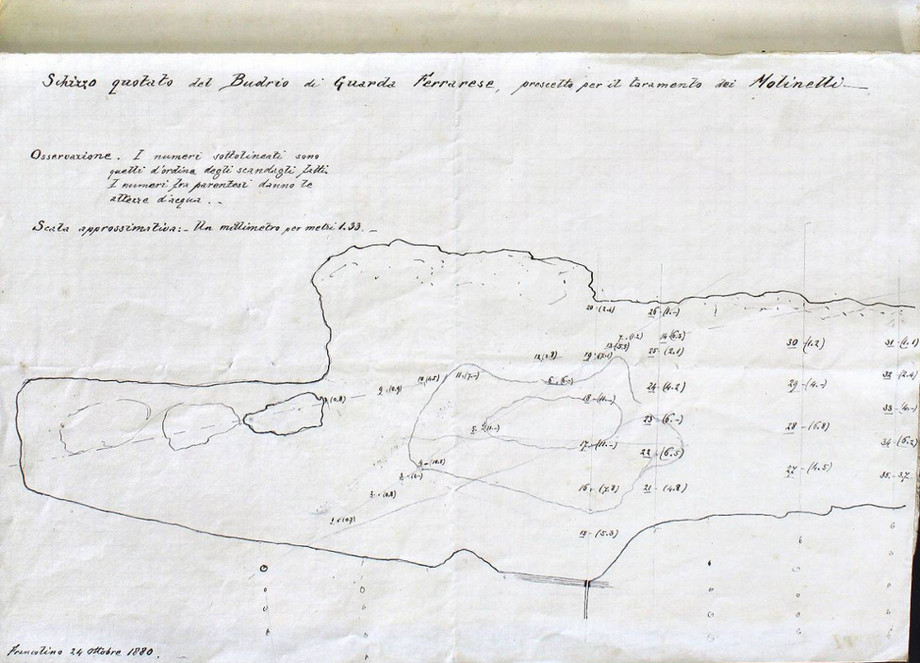 Schizzo quotato del Budrio di Guarda Ferrarese, prescelto per il taramento dei Molinelli
Osservazione. I numeri sottolineati sono
quelli d'ordine degli scandagli fatti.
I numeri fra parentesi danno le
altezze d'acqua.
Scala approssimativa: Un millimetro per metri 1.33.
20 (2.4)
26 (1.-)
7 (1.2)
13 (3.3)
14 (6.3)
30 (1.2)
31 (1.1)
12 (0.9)
19 (7.1)
25 (2.1)
10 (4.5)
11 (7.-)
32 (2.4)
9 (0.9)
24 (4.2)
29 (4.-)
8 (0.8)
18 (11.-)
33 (4.-)
23 (6.-)
28 (6.8)
5 (11.-)
17 (11.-)
34 (6.2)
22 (6.5)
4 (10.5)
27 (4.5)
35
16 (7.8)
21 (4.8)
2 (0.8)
1 (0.7)
(5.3)
Francolino 24 Ottobre 1880.